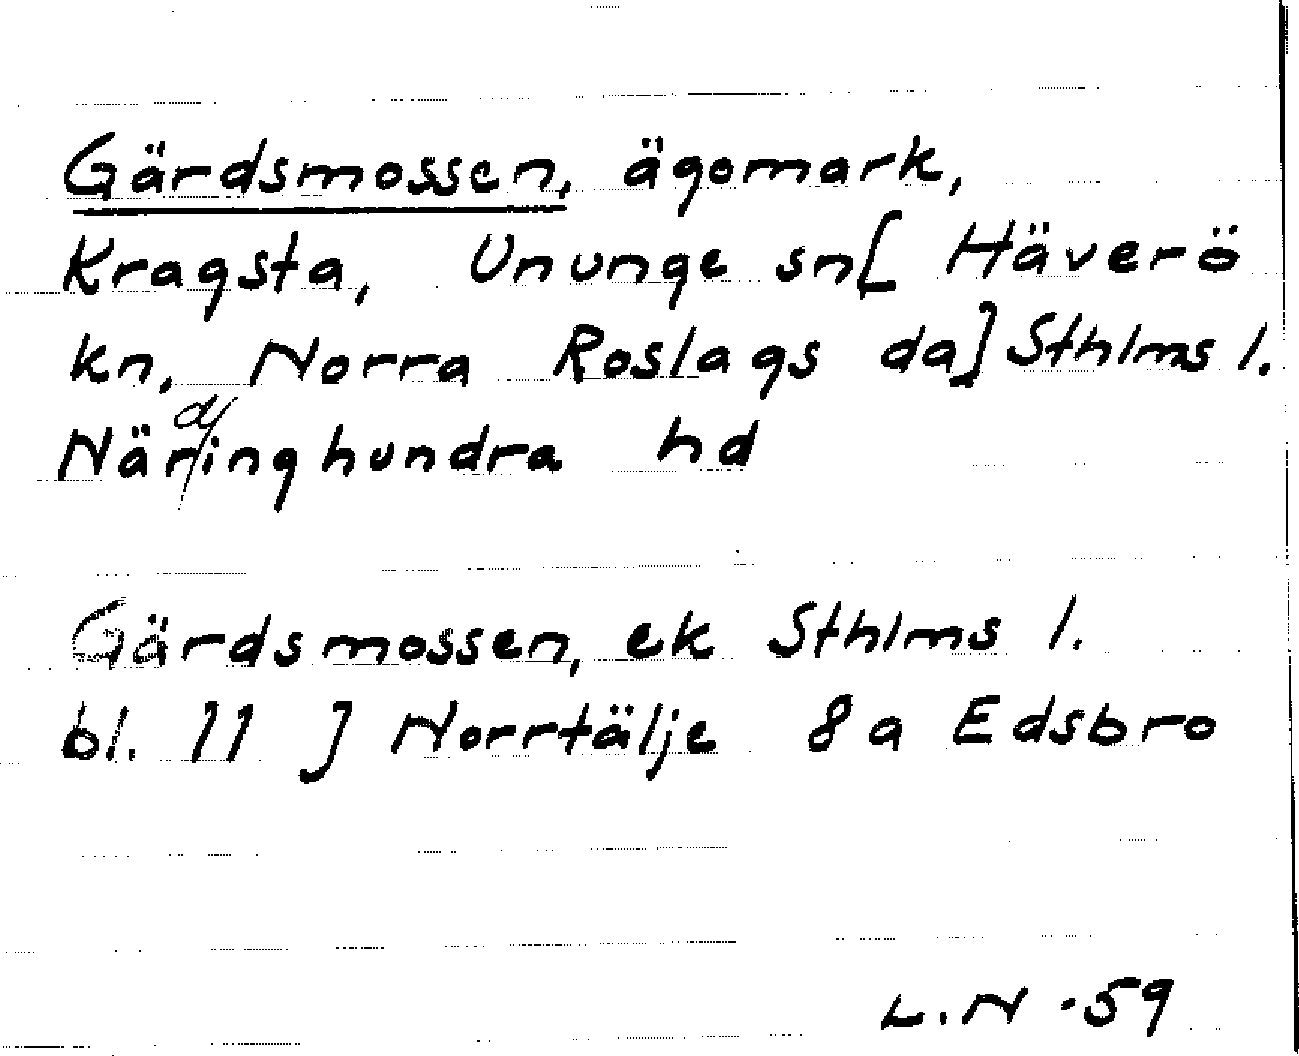 Gärdsmossen, ägomark,
Kragsta, Ununge sn[ Häverö
kn, Norra Roslags da] Sthlms l.
Näringhundra hd
Gärdsmossen, ek Sthlms l.
bl. 11 J Norrtälje 8a Edsbro
L.N -59